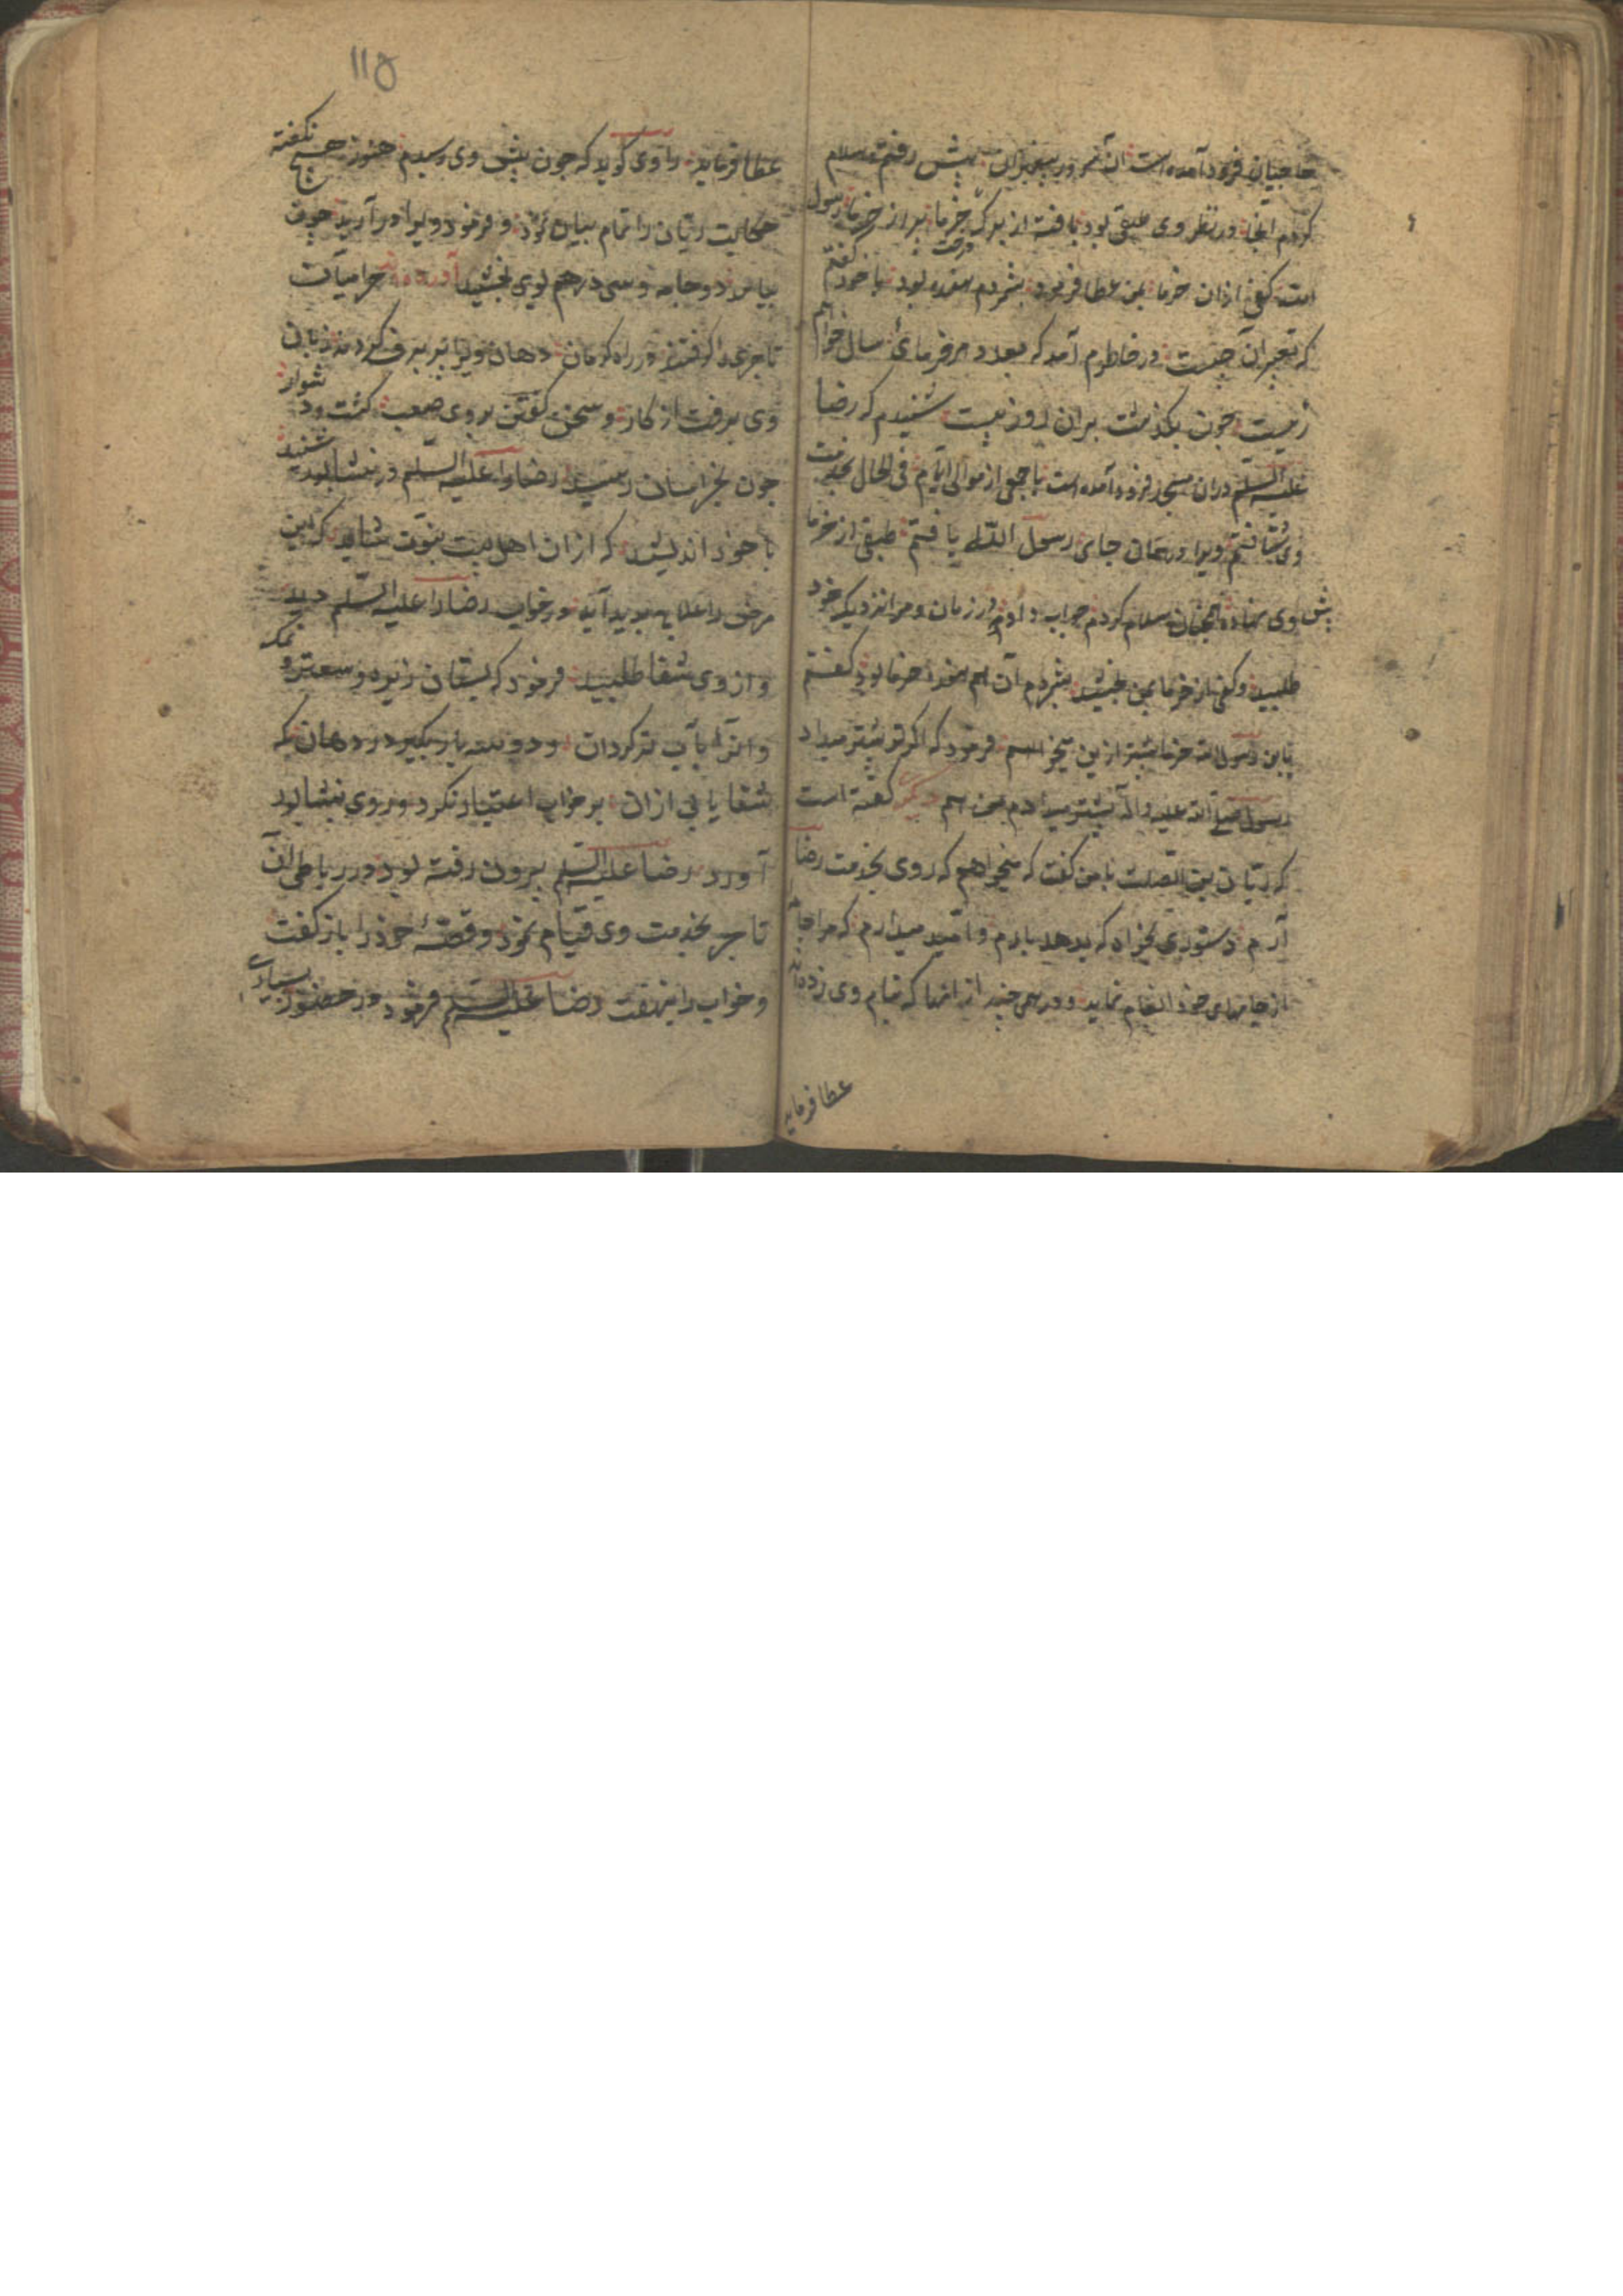 حاجیان فرود آمده است آن سرور پیغمبران پیش رفتم و سلام
کردم آنجا در نظر وی طبقی بود بافته از برک درخت خرما پر از خرما رسول
است کفی ازان خرما بمن عطا فرمود بشمردم هفده بود با خود گفتم
که تعبیر آن چیست در خاطرم آمد که بعدد هر خرمائی سال خواهم
زیست چون بگذشت بران روز بیست شنیدم که رضا
علیه السلم دران مسجد فرود آمده است با جمعی از موالی ایام فی الحال بخدمت
وی شتافتم ویرا در همان جای رسول الله یافتم طبقی از خرما
پیش وی نهاده همچنان سلام کردم جواب داد در زمان و مرا نزدیک خود
طلبید و کفی از خرما بمن بخشید بشمردم آن هم هفده خرما بود گفتم
یا بن رسول الله خرما بیشتر ازین میخواهم فرمود که اگر ترا بیشتر میداد
رسول صلی الله علیه و آله بیشتر میدادم من هم دیگر گفته است
که ریان بن الصلت با من گفت که میخواهم که روی بخدمت رضا
آرم دستوری بخواه که بدهد بارم و امید میدارم که مرا جامه
از جامهای خود انعام نماید و درهمی چند از انها که بنام وی زده اند
عطا فرماید
۱۱۵
عطا فرماید راوی گوید که چون پیش وی رسیدم هنوز هیچ نکفته
حکایت ریان را تمام بیان نمود و فرمود ویرا در آرید چون
بیامد دو جامه و سی درهم بوی بخشید آورده اند حرامیان
تاجری را گرفتند در راه کرمان دهان ویرا پر برف کردند زبان
وی برفت از کار و سخن گفتن بروی صعب گشت و دشوار
چون بخراسان رسید رضا را علیه السلم در نشابور شنید
با خود اندیشید که ازان اهل بیت نبوت شاید که این
مرض را علاج پدید آید در خواب رضا را علیه السلم دید
و از وی شفا طلبید فرمود که بستان زیره و سعتر و نمک
و انرا بآب تر کردان و دو سه بار بگیر در دهان که
شفا یابی ازان بر خواب اعتماد نکرد و روی بنشابور
آورد رضا علیه السلم بیرون رفته بود و در رباطی آن
تاجر بخدمت وی قیام نمود و قصهٔ خود را باز گفت
و خواب را نهفت رضا علیه السلم فرمود در حضور بسیاری